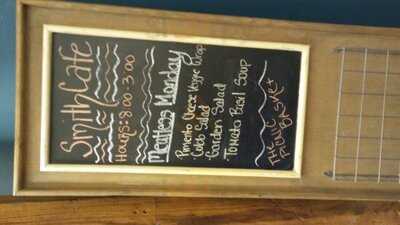 Smith Cafe
Hours: 8:00 - 3:00
Meatless Monday
Pimento Cheese Veggie Wrap
Cobb Salad
Garden Salad
Tomato Basil Soup
THE
PICNIC
BASKET